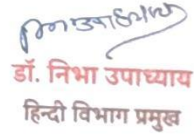 डॉ. निभा उपाध्याय
हिन्दी विभाग प्रमुख